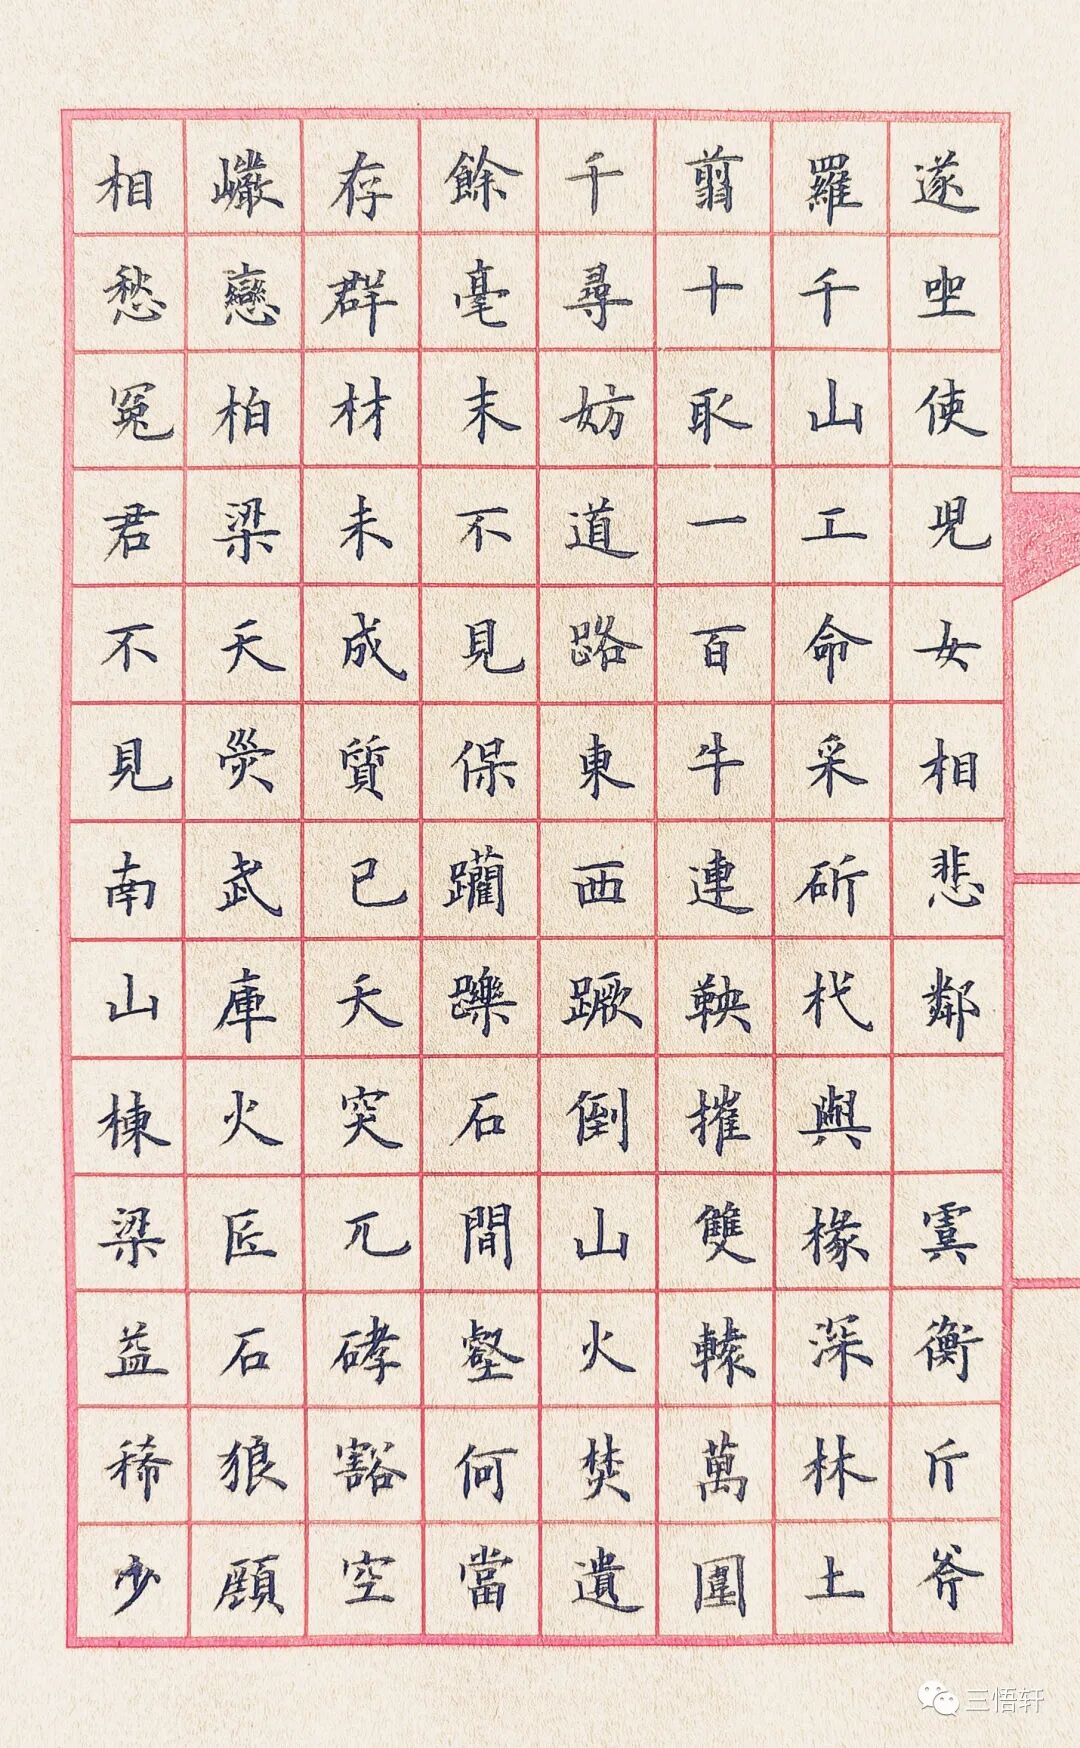 遂坐使兒女相悲鄰　虞衡斤斧
羅千山工命采斫杙與椽深林土
翦十取一百牛連鞅摧雙轅萬圍
千尋妨道路東西蹶倒山火焚遺
餘毫末不見保躪躒石間壑何當
存群材未成質已夭突兀硣豁空
巖巒柏梁天災武庫火匠石狼顧
相愁冤君不見南山棟梁益稀少
三悟轩